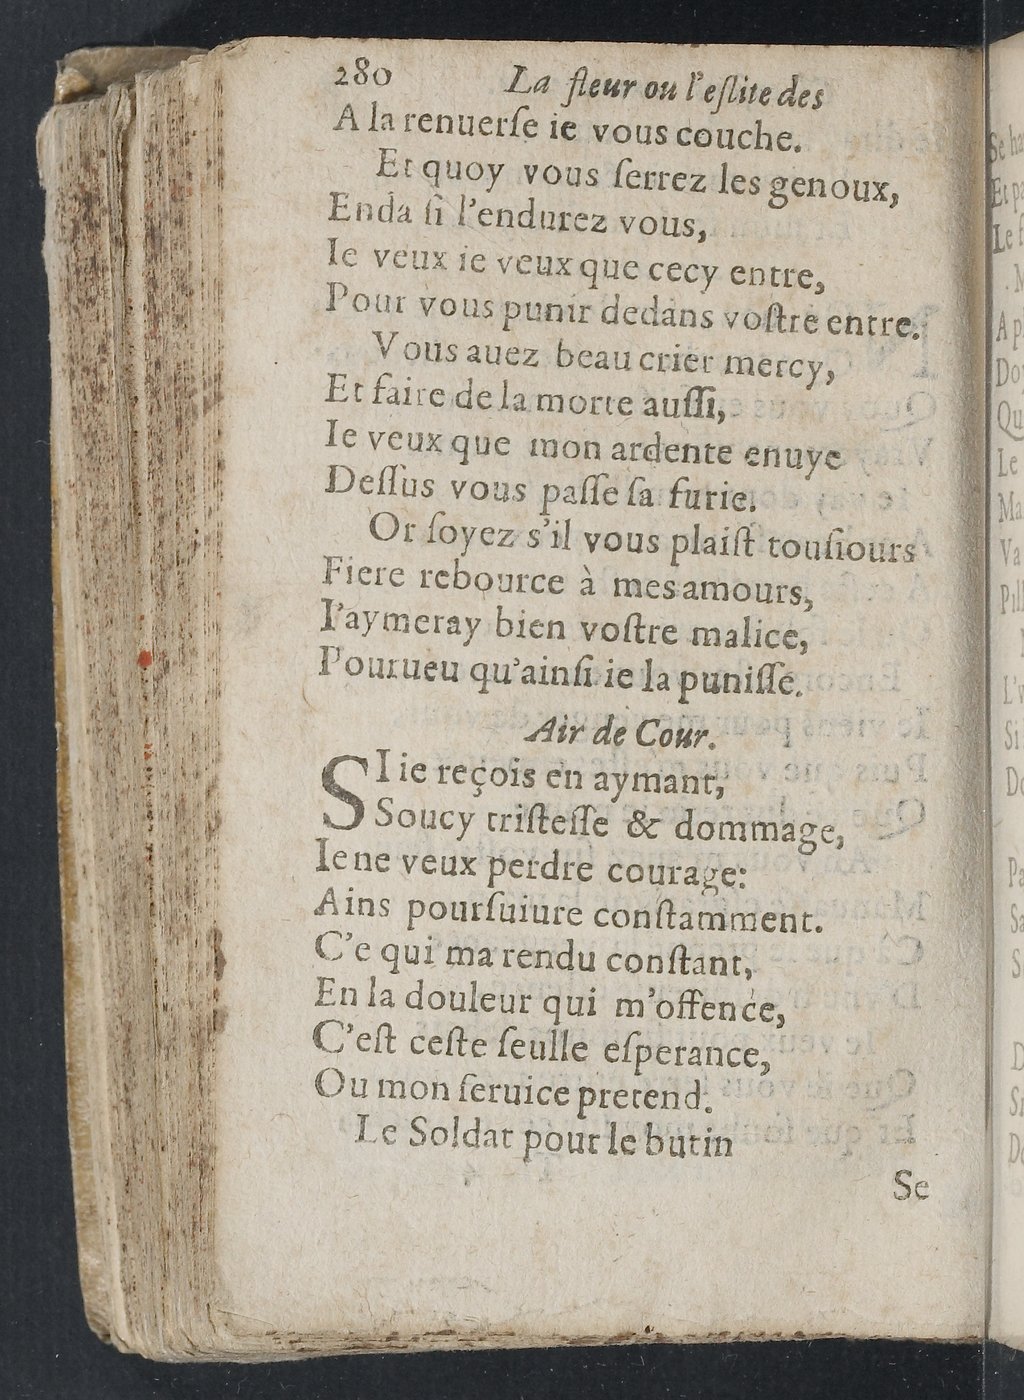 280 La fleur ou l'eſlite des
A la renuerſe ie vous couche.
Et quoy vous ſerrez les genoux,
Enda ſi l'endurez vous,
Ie veux ie veux que cecy entre,
Pour vous punir dedans voſtre entre.
Vous auez beau crier mercy,
Et faire de la morte auſſi,
Ie veux que mon ardente enuye
Deſſus vous paſſe ſa furie.
Or ſoyez s'il vous plaiſt touſiours
Fiere rebource à mes amours,
I'aymeray bien voſtre malice,
Pourueu qu'ainſi ie la puniſſe.
Air de Cour.
SI ie reçois en aymant,
Soucy triſteſſe & dommage,
Ie ne veux perdre courage:
Ains pourſuiure conſtamment.
C'e qui ma rendu conſtant,
En la douleur qui m'offence,
C'eſt ceſte ſeulle eſperance,
Ou mon ſeruice pretend.
Le Soldat pour le butin
Se